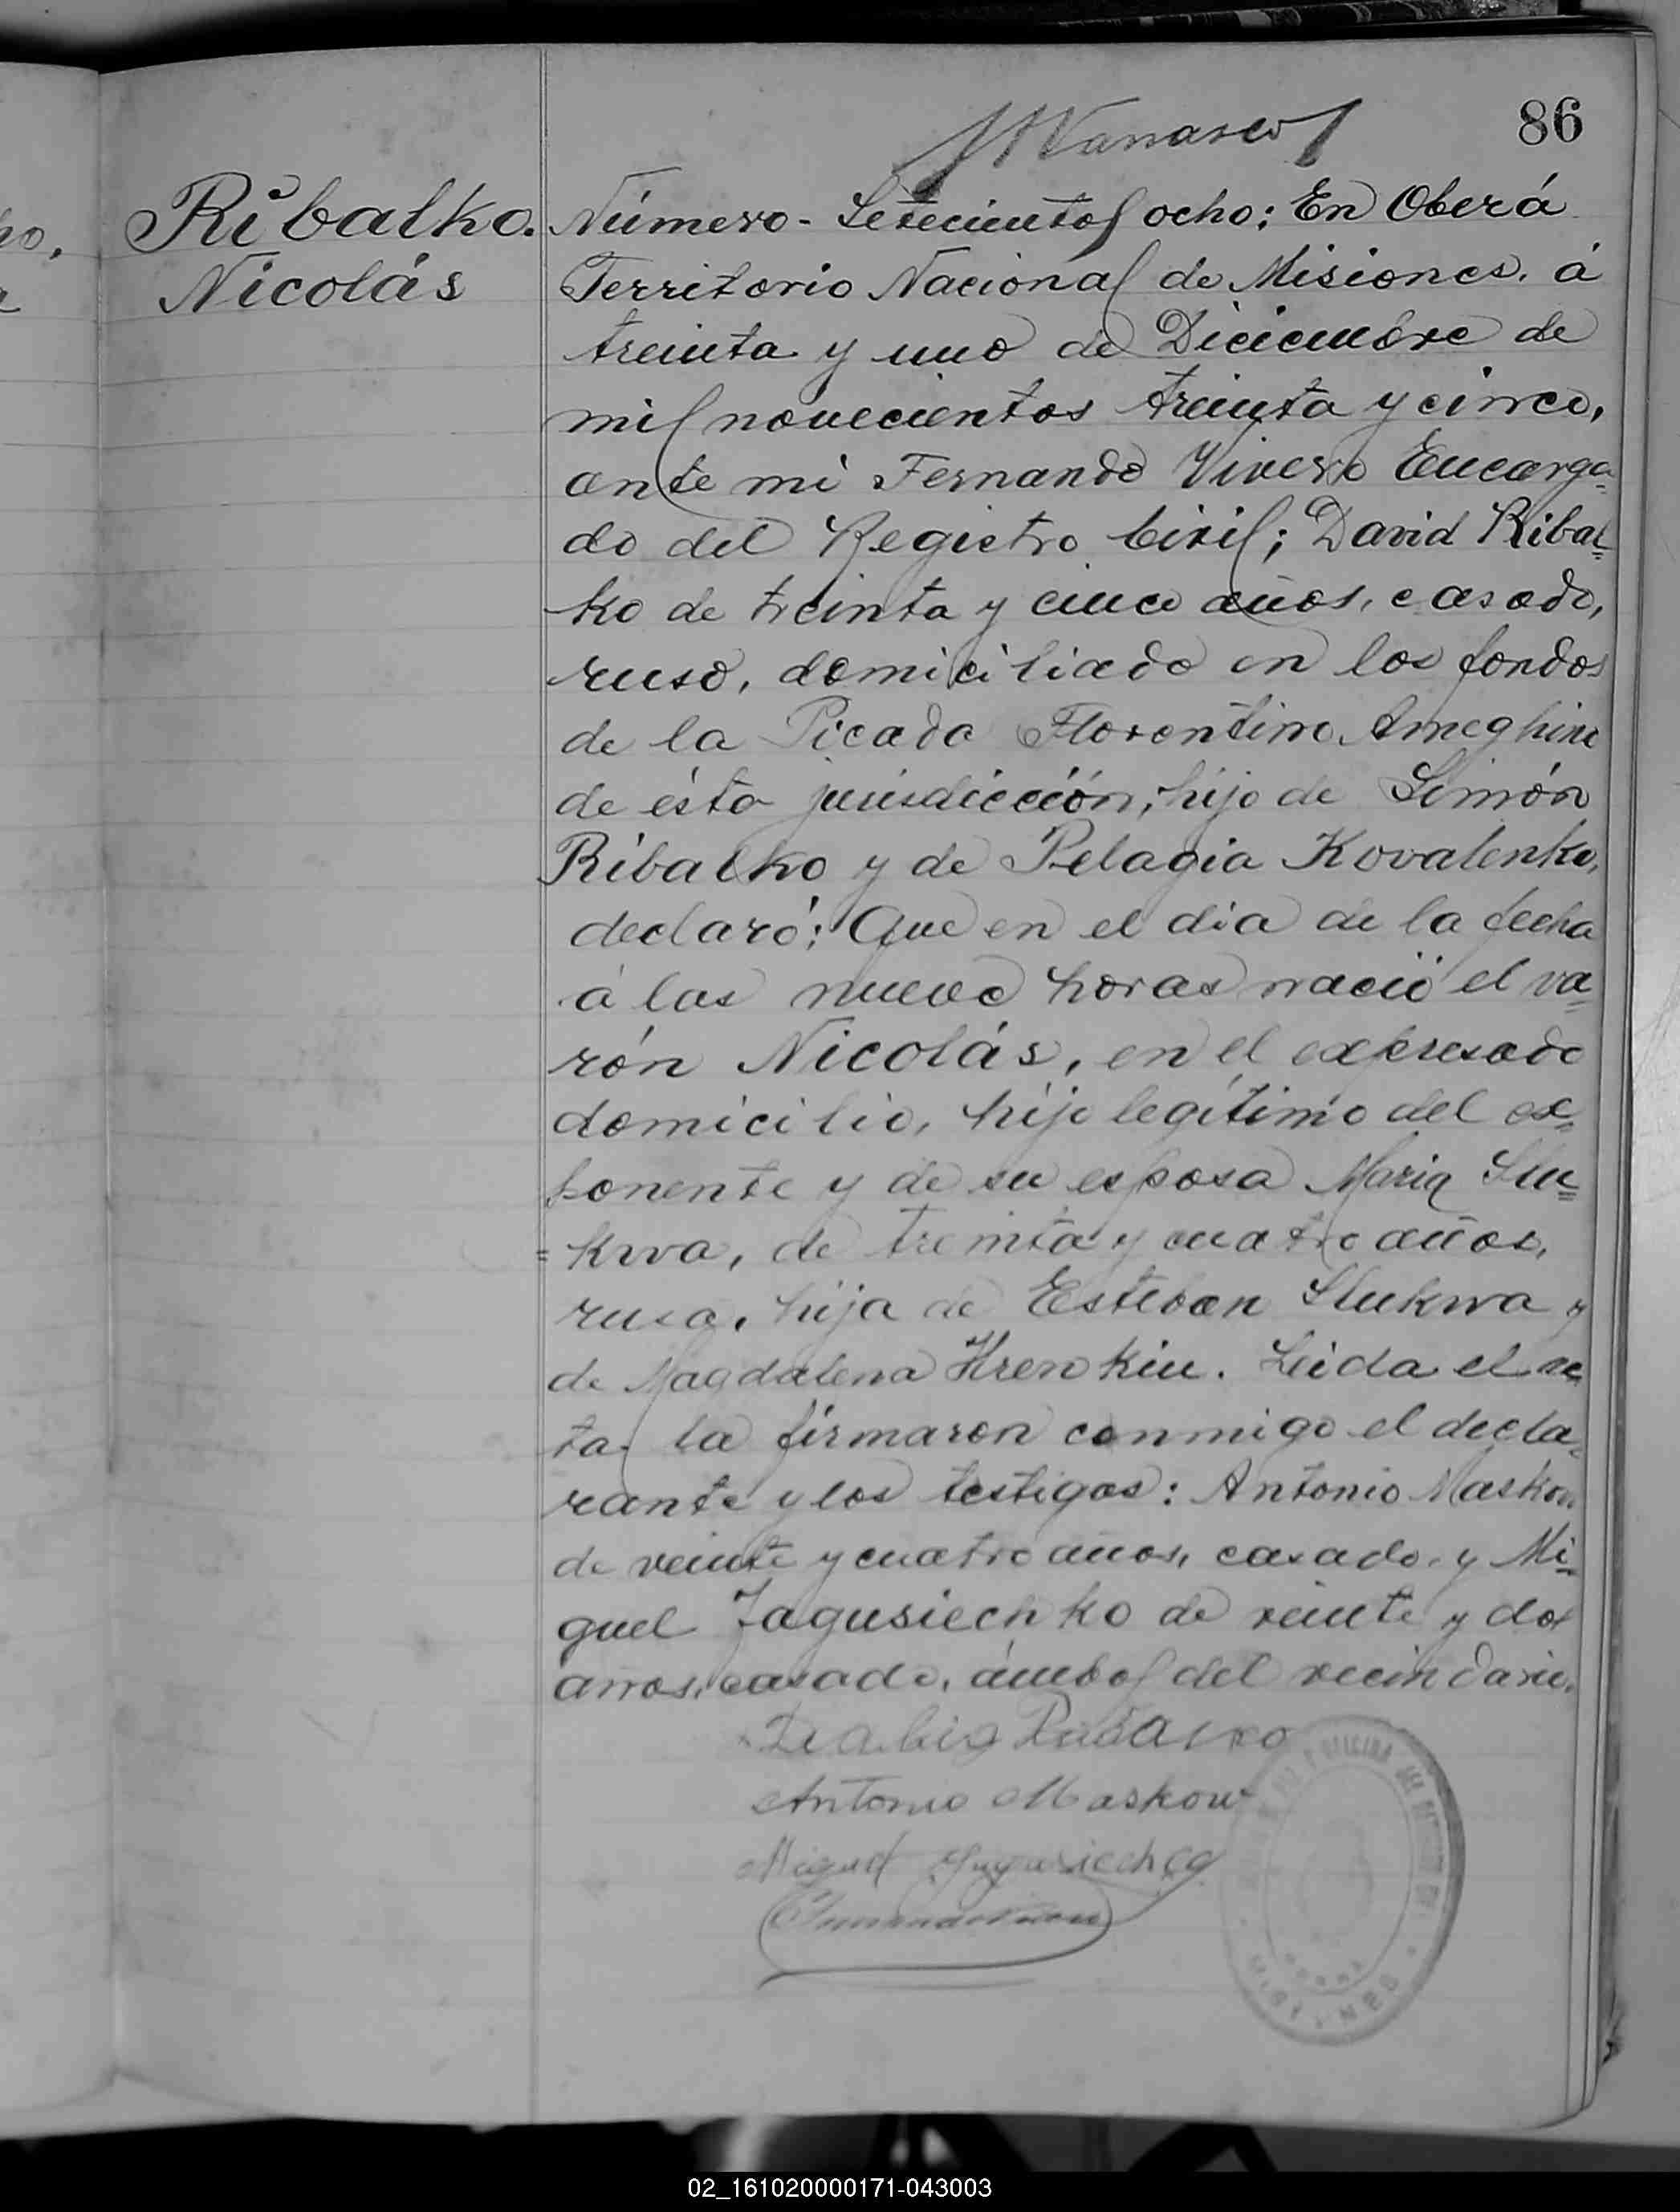 86
Ribalko.
Nicolás
Número - Setecientos ocho: En Oberá
Territorio Nacional de Misiones, á
treinta y uno de Diciembre de
mil novecientos treinta y cinco,
ante mi Fernando Vivero Encarga=
do del Registro Civil; David Ribal=
ko de treinta y cinco años, casado,
ruso, domiciliado en los fondos
de la Picada Florentino Ameghino
de ésta jurisdicción, hijo de Simón
Ribalko y de Pelagia Kovalenko,
declaró: Que en el dia de la fecha
á las nueve horas nació el va=
rón Nicolás, en el expresado
domicilio, hijo legítimo del ex=
ponente y de su esposa Maria Slu=
=kwa, de treinta y cuatro años,
rusa, hija de Esteban Slukwa y
de Magdalena Hrenkiu. Leida el ac
ta, la firmaron conmigo el decla=
rante y los testigos: Antonio Maskow
de veinte y cuatro años, casado, y Mi=
guel Jagusiechko de veinte y dos
años, casado, ámbos del vecindario.
Antonio Maskow
Miguel
02_161020000171-043003